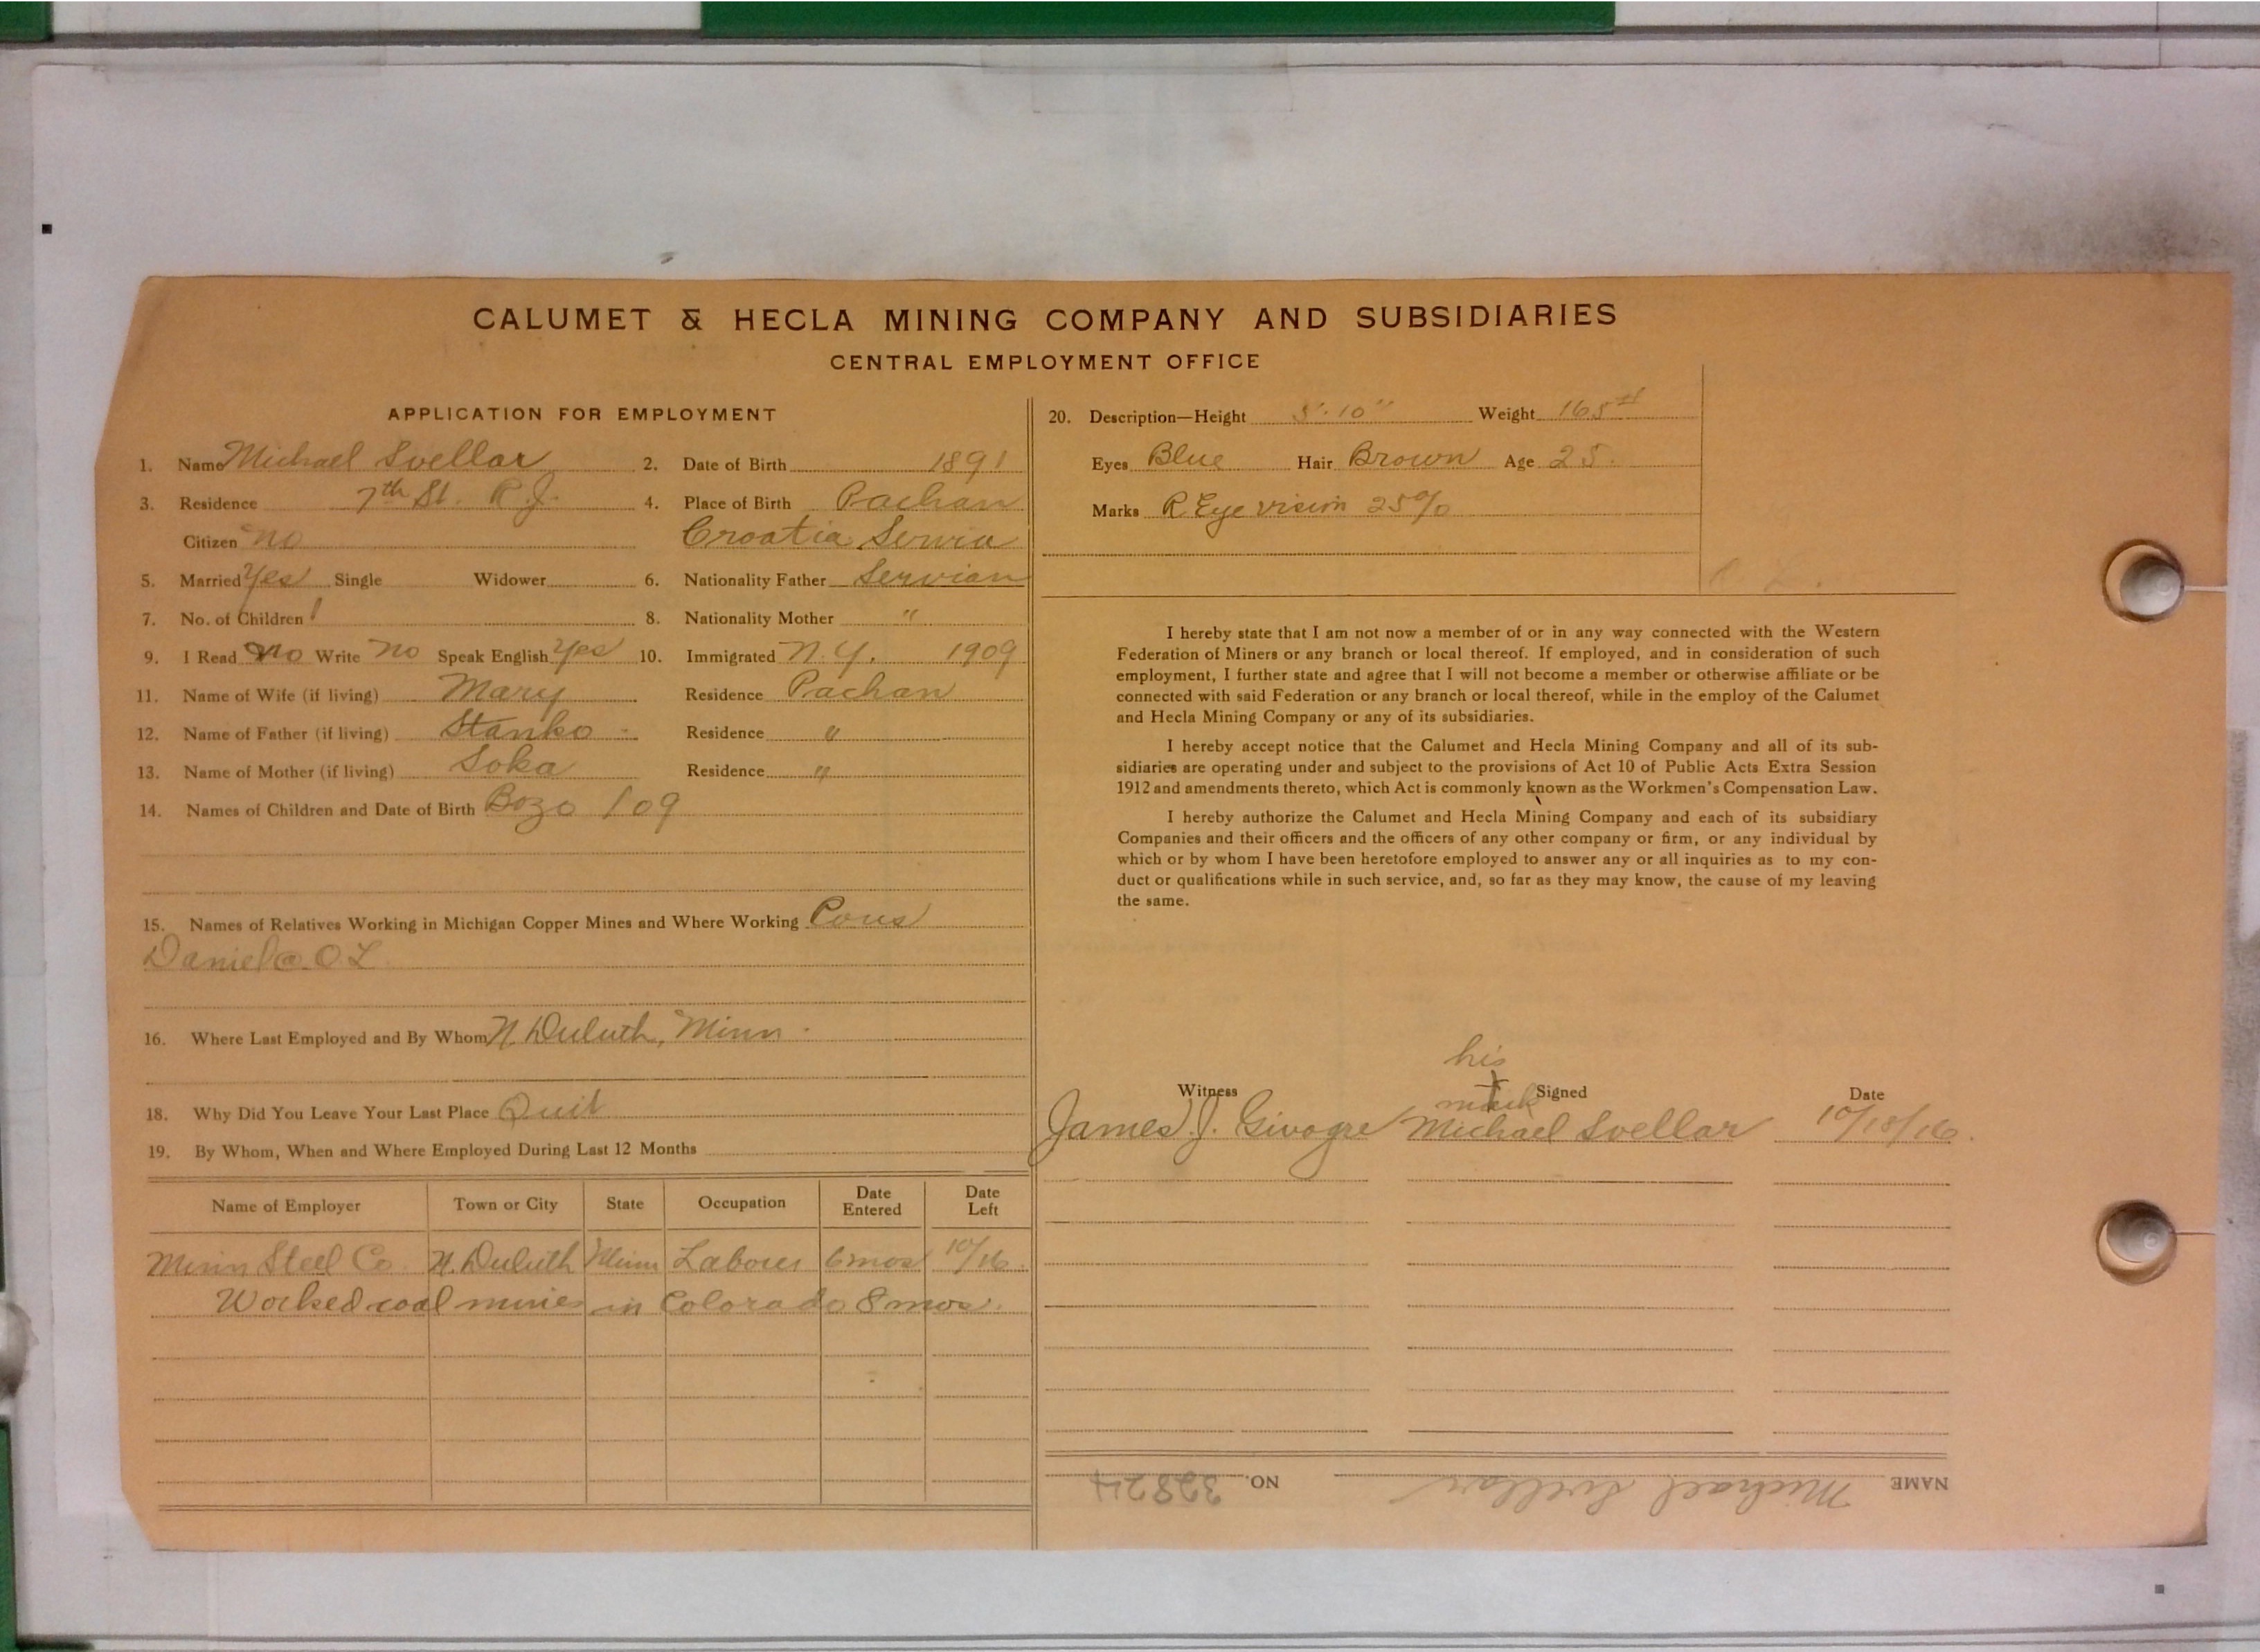 CALUMET & HECLA MINING COMPANY AND SUBSIDIARIES
CENTRAL EMPLOYMENT OFFICE
APPLICATION FOR EMPLOYMENT
1. Name Michael Svellar 2. Date of Birth 1891
3. Residence 7th St. R.J. 4. Place of Birth Pachan
Citizen no Croatia Servia
5. Married Yes Single Widower 6. Nationality Father Servian
7. No. of Children 1 8. Nationality Mother "
9. I Read No Write no Speak English Yes 10. Immigrated N.Y. 1909
11. Name of Wife (if living) Mary Residence Pachan
12. Name of Father (if living) Stanko Residence "
13. Name of Mother (if living) Soka Residence "
14. Names of Children and Date of Birth Bozo 109
15. Names of Relatives Working in Michigan Copper Mines and Where Working Cous
Daniel @ O L
16. Where Last Employed and By Whom N. Duluth, Minn.
18. Why Did You Leave Your Last Place Quit
19. By Whom, When and Where Employed During Last 12 Months
Name of Employer Town or City State Occupation Date Entered Date Left
Minn Steel Co N. Duluth Minn Laborer 6 mos 10/16
Worked coal mines in Colorado 8 mos.
20. Description—Height 5'-10" Weight 165#
Eyes Blue Hair Brown Age 25.
Marks R. Eye vision 25%
I hereby state that I am not now a member of or in any way connected with the Western
Federation of Miners or any branch or local thereof. If employed, and in consideration of such
employment, I further state and agree that I will not become a member or otherwise affiliate or be
connected with said Federation or any branch or local thereof, while in the employ of the Calumet
and Hecla Mining Company or any of its subsidiaries.
I hereby accept notice that the Calumet and Hecla Mining Company and all of its sub-
sidiaries are operating under and subject to the provisions of Act 10 of Public Acts Extra Session
1912 and amendments thereto, which Act is commonly known as the Workmen's Compensation Law.
I hereby authorize the Calumet and Hecla Mining Company and each of its subsidiary
Companies and their officers and the officers of any other company or firm, or any individual by
which or by whom I have been heretofore employed to answer any or all inquiries as to my con-
duct or qualifications while in such service, and, so far as they may know, the cause of my leaving
the same.
his
Witness mark Signed Date
James J. Givogre Michael Svellar 10/18/16.
NAME Michael Svellar NO. 32824